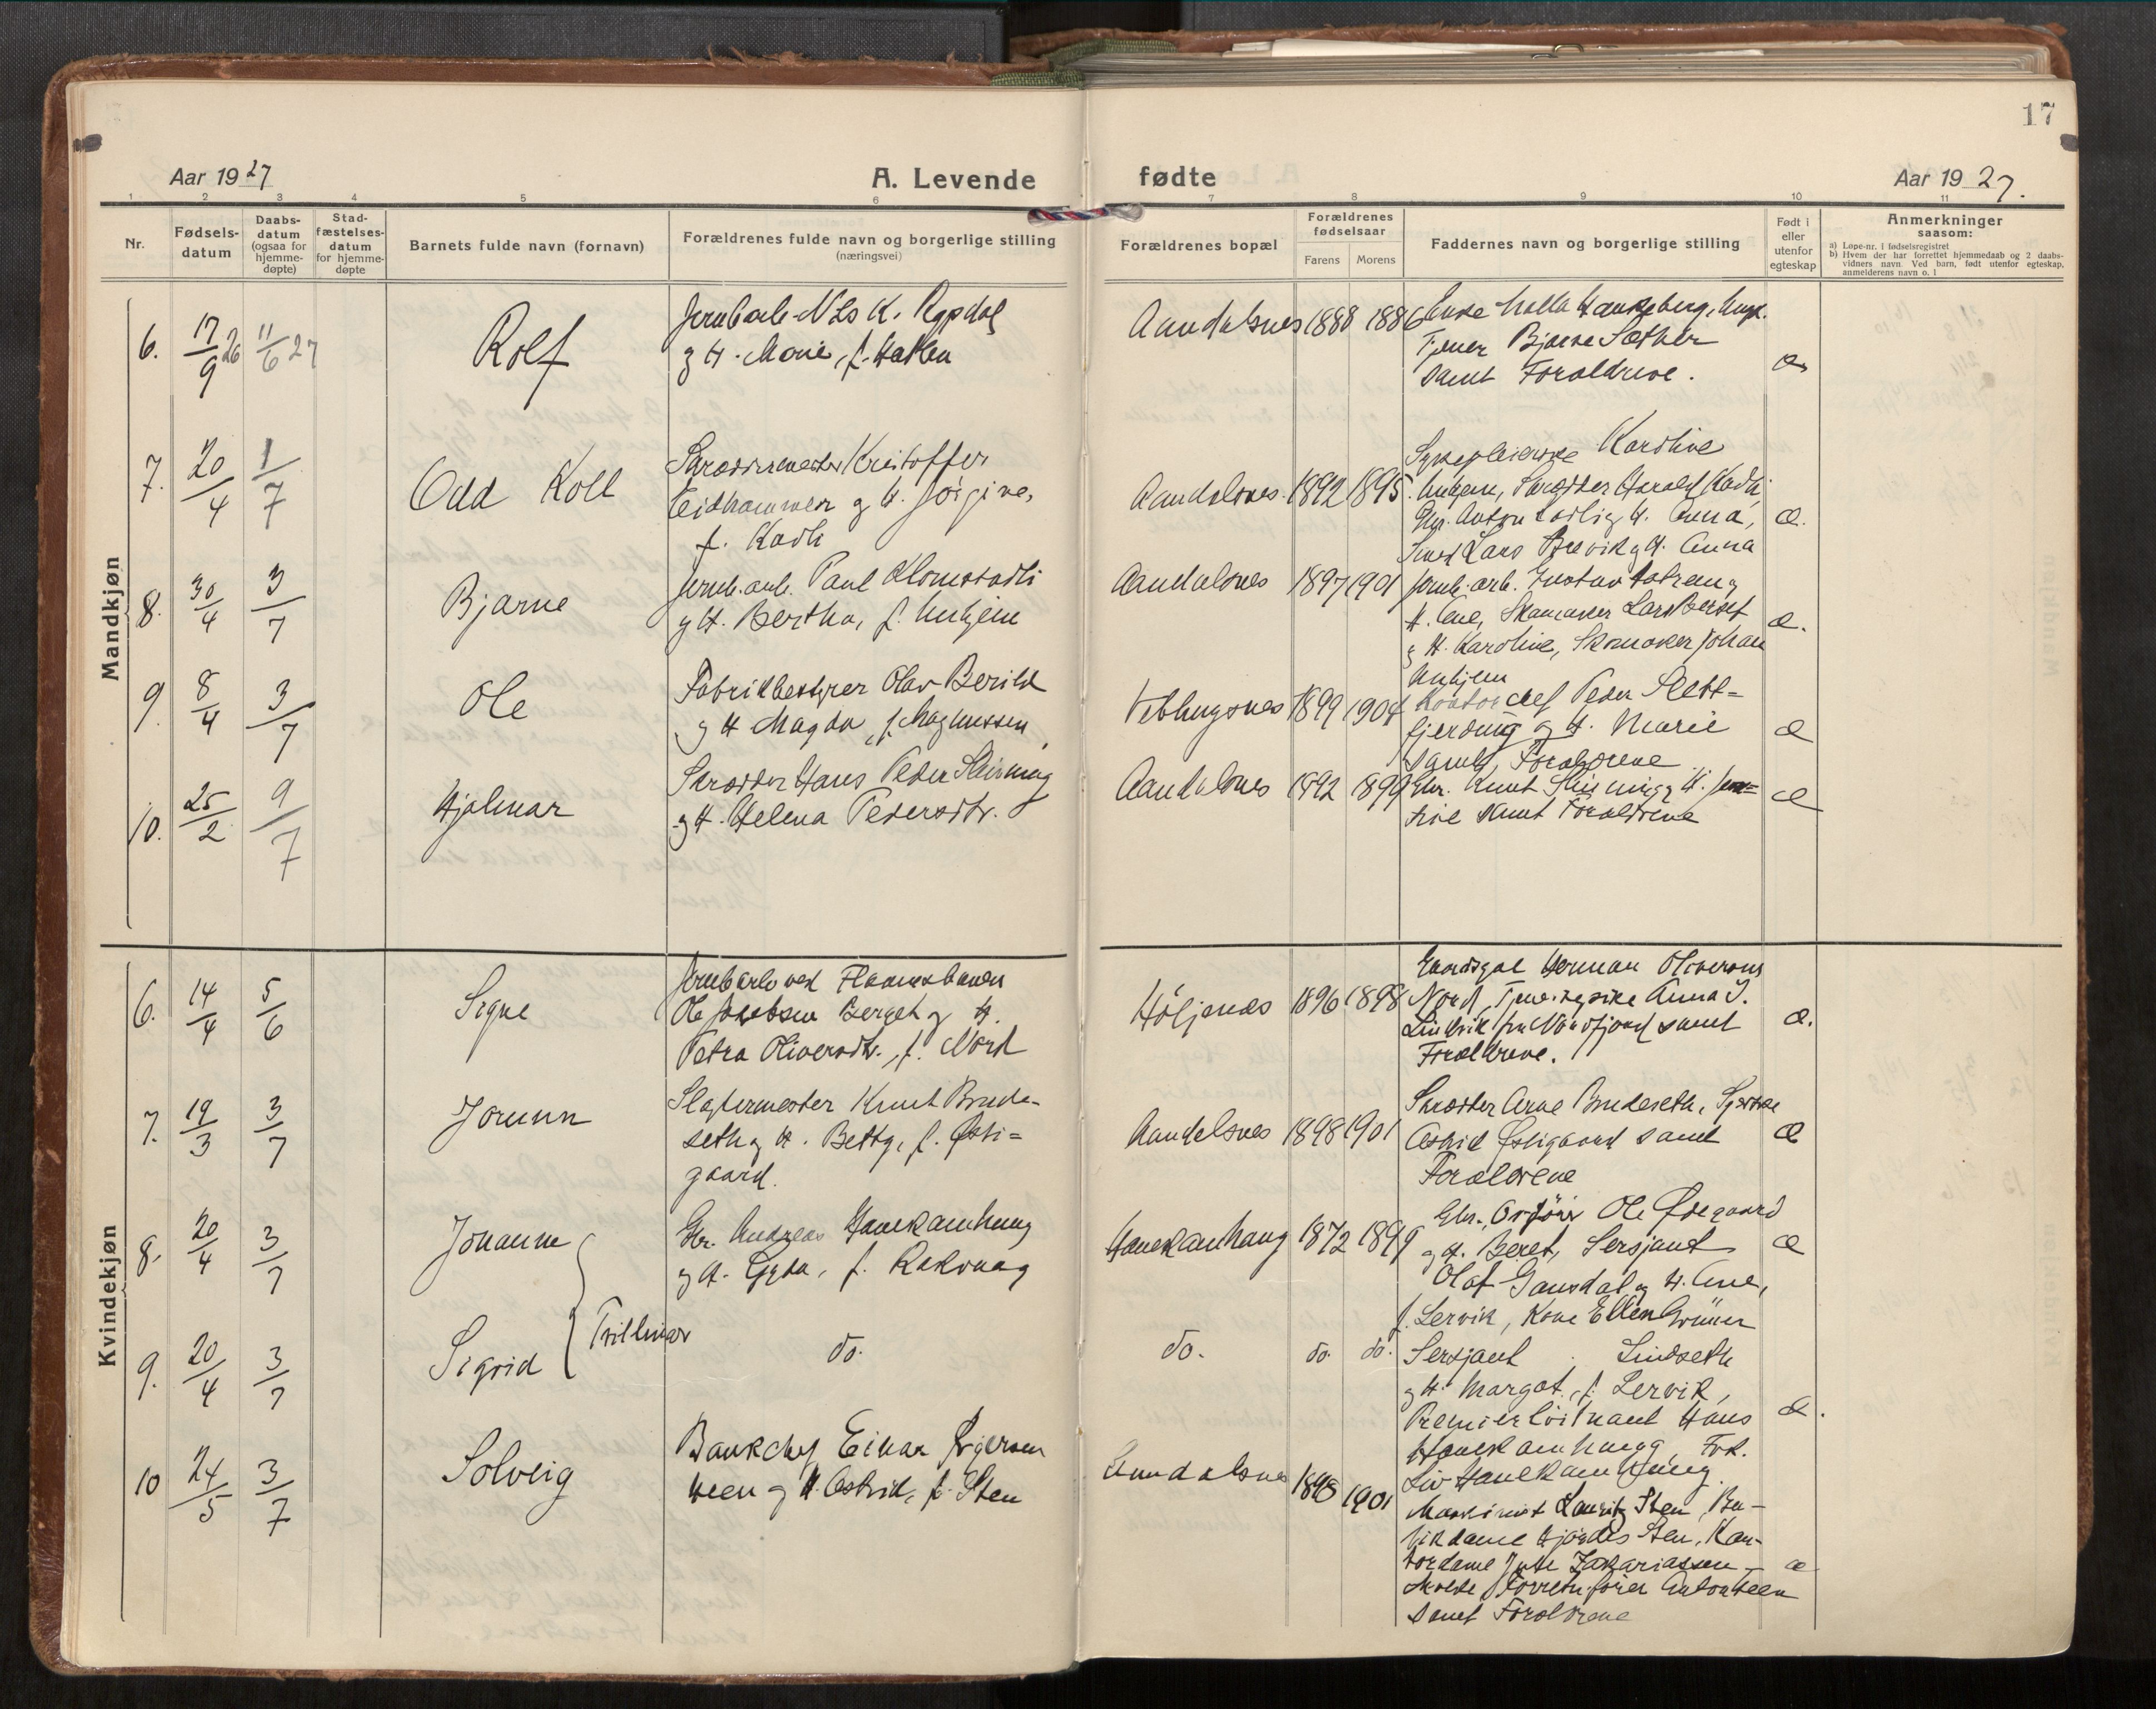 17
Aar 1927
A. Levende
fødte
Aar 1927.
1 2 3 4 5 6 7 8 9 10 11
Nr.
Fødselsdatum
Daabsdatum (ogsaa for hjemmedøpte)
Stadfæstelsesdatum for hjemmedøpte
Barnets fulde navn (fornavn)
Forældrenes fulde navn og borgerlige stilling
(næringsvei)
Forældrenes bopæl
Forældrenes fødselsaar
Farens Morens
Faddernes navn og borgerlige stilling
Født i eller utenfor egteskap
Anmerkninger
saasom:
a) Løpe-nr. i fødselsregistret
b) Hvem der har forrettet hjemmedaab og 2 daabsvidners navn. Ved barn, født utenfor egteskap, anmelderens navn o. l
Mandkjøn
6. 17/9 26 11/6 27 Rolf
Jernbarb. Nils K.
og H. Marie, f. Hatlen
Aandalsnes 1888 1886
Tjener Bjarne Sæther
samt Forældrene.
æ
7. 20/4 1/7 Odd Koll
Skræddermester Kristoffer
Eidhammer og H. Jørgine,
f. Kavli
Aandalsnes. 1892 1895.
Sykepleierske Karoline
Unhjem, Skrædder Harald Kavli
Gbr. Anton og H. Anna,
Lars Brevik og H. Anna
æ.
8. 30/4 3/7 Bjarne
Jernb. arb. Paul Klomstadli
og H. Bertha, f. Unhjem
Aandalsnes 1897 1901
Jernb. arb. Gustav og
H. Ane, Skomaker Lars Berset
og H. Karoline, Skomaker Johan
Unhjem
æ.
9. 8/4 3/7 Ole
Fabrikbestyrer Olav Berild
og H Magda, f. Magnussen
Veblungsnes 1899 1904
Kontorchef Peder Slett=
fjerding og H. Marie
samt Forældrene
æ
10. 25/2 9/7 Hjalmar
Skrædder Hans Peder
og H. Helena Pedersdtr.
Aandalsnes 1892 1899
Gbr. Knut og H.
samt Forældrene
æ
Kvindekjøn
6. 14/4 5/6 Signe
Jernbarb ved Flaamsbanen
Ole Jakobsen Berget og H.
Petra Oliversdtr., f. Nord
Höljenes 1896 1898
Gaardsgut Herman Oliversen
Nord, Tjenestepike Anna J.
fra Nordfjord samt
Forældrene.
æ.
7. 19/3 3/7 Jorunn
Slagtermester Knut Brude-
seth og H. Betty, f. Østi=
gaard.
Aandalsnes 1898 1901
Skrædder Arne Brudeseth, Syerske
Astrid Østigaard samt
Forældrene
æ
8. 20/4 3/7 Johanne
Gbr. Andreas Hanekamhaug
og H. Gyda, f. Rakvaag
Hanekamhaug 1872 1899
Gbr., Ordfører Ole Ødegaard
og H. Beret, Sersjant
Olaf Gausdal og H. Ane,
f. Lervik, Kone Ellen Grüner
æ
Tvillinger
9. 20/4 3/7 Sigrid
do.
do. do. do.
Sersjant . Lindseth
og H. Margot, f. Lervik,
Premierløitnant Hans
Hanekamhaug, Frk.
Liv Hanekamhaug.
æ.
10 24/5 3/7 Solveig
Bankchef Einar
Aandalsnes 1898 1901
og H. Astrid, f. Sten
Maskinist Lauritz Sten, Bu-
tikdame Hjørdis Sten, Kon-
tordame Zakariassen -
Molde,
samt Forældrene
æ